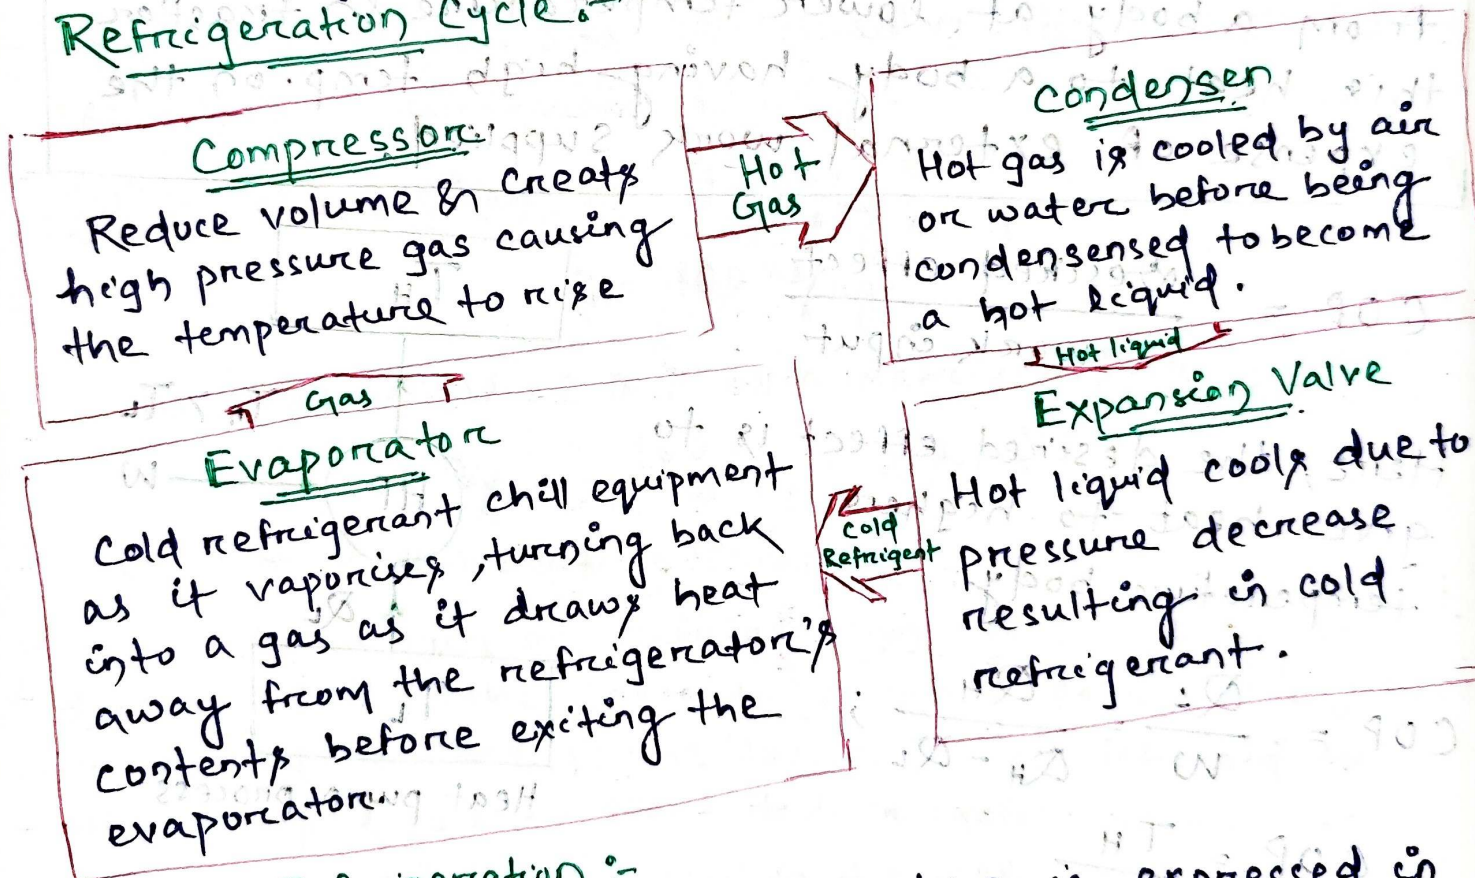 Refrigeration Cycle:-
Compressor
Reduce volume & creats
high pressure gas causing
the temperature to rise
Hot
Gas
Condenser
Hot gas is cooled by air
or water before being
condensensed to become
a hot liquid.
Hot liquid
Expansion Valve
Hot liquid cools due to
pressure decrease
resulting in cold
refrigerant.
Cold
Refrigent
Gas
Evaporator
Cold refrigerant chill equipment
as it vaporises, turning back
into a gas as it draws heat
away from the refrigerator's
contents before exiting the
evaporator.
expressed in